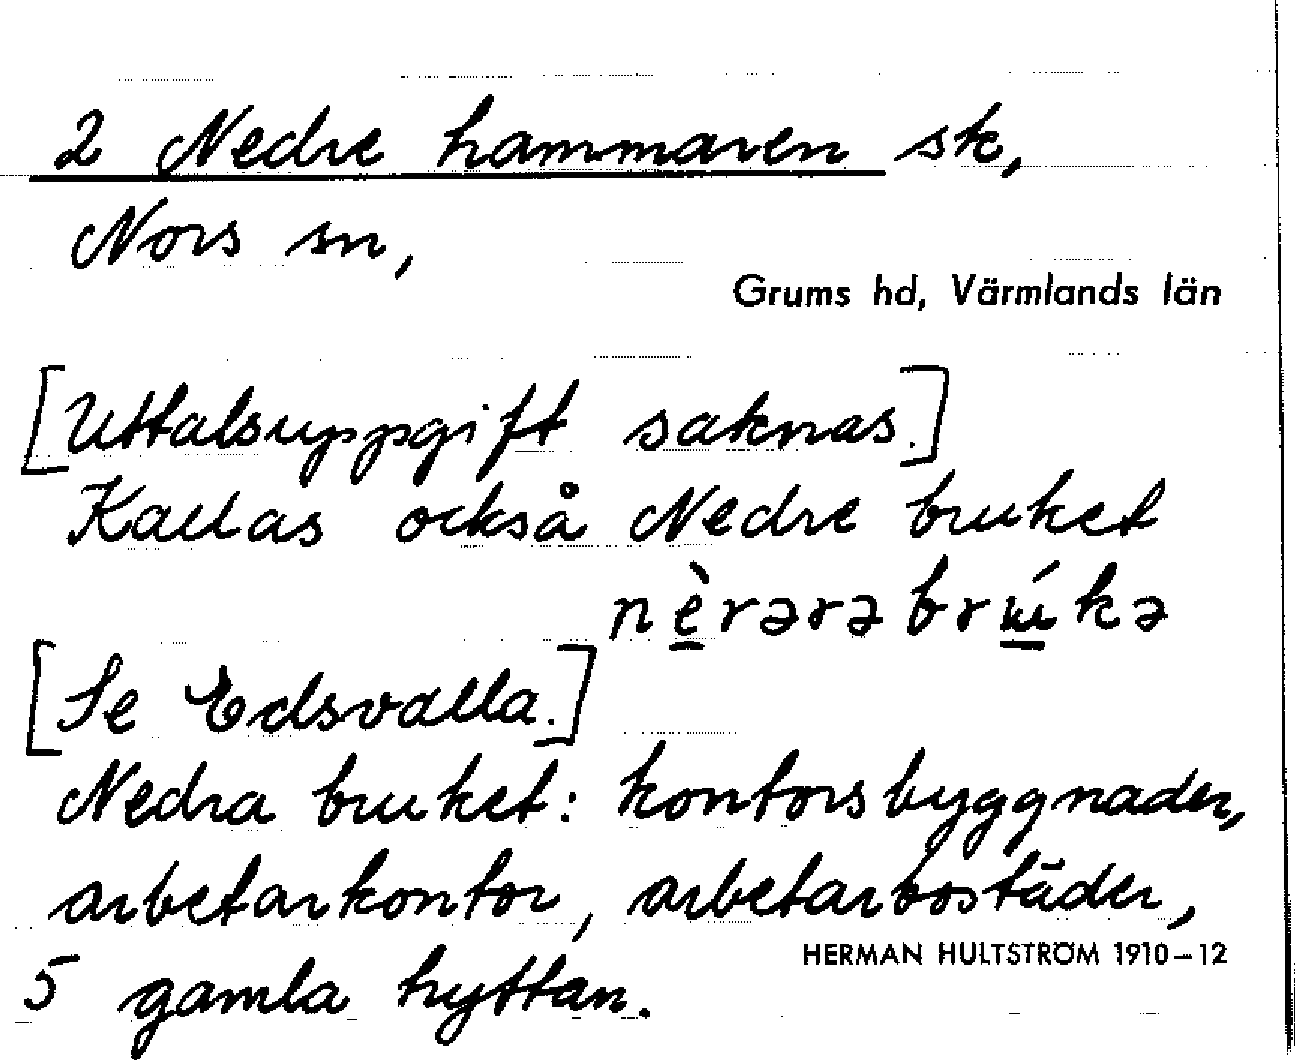 2 Nedre hammaren sk,
Nors sn,
Grums hd, Värmlands län
[Uttalsuppgift saknas.]
Kallas också Nedre bruket
nèrərəbrɯ́kə
[Se Edsvalla.]
Nedra bruket: kontorsbyggnader,
arbetarkontor, arbetarbostäder,
HERMAN HULTSTRÖM 1910–12
5 gamla hyttan.